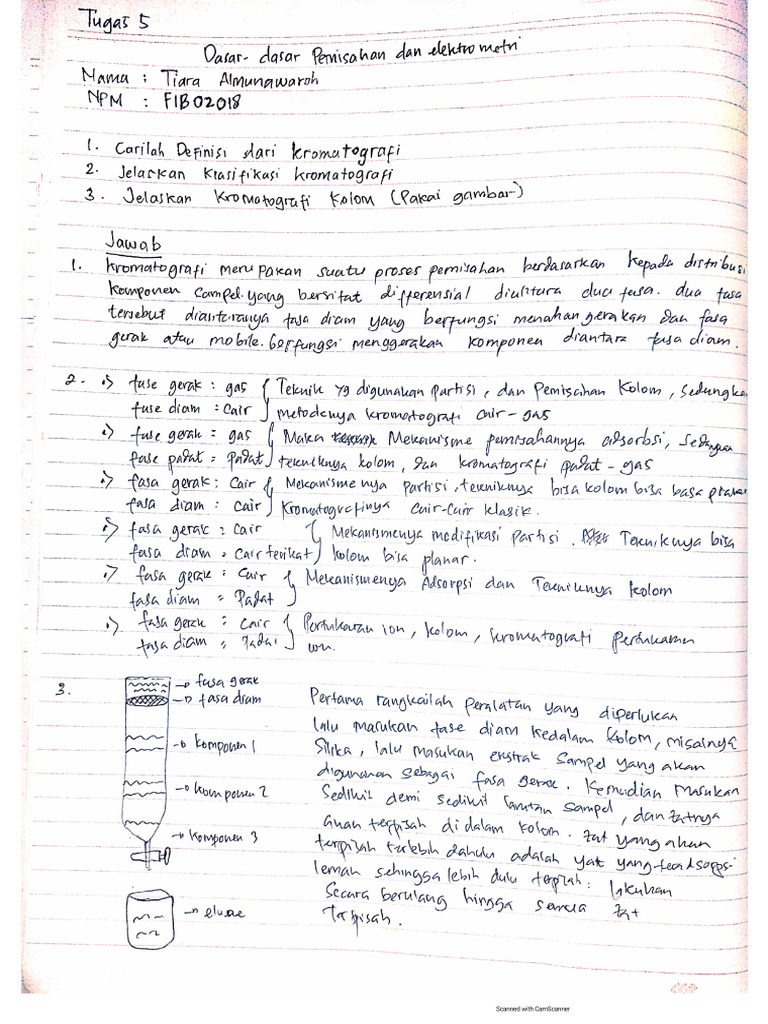 Tugas 5
Dasar-dasar Pemisahan dan elektrometri
Nama : Tiara Almunawaroh
NPM : F1B02018
1. Carilah Definisi dari kromatografi
2. Jelaskan klasifikasi kromatografi
3. Jelaskan Kromatografi Kolom (Pakai gambar)
Jawab
1. kromatografi merupakan suatu proses pemisahan berdasarkan kepada distribusi
komponen campel yang bersifat differensial diantara dua fasa. dua fasa
tersebut diantaranya fasa diam yang berfungsi menahan gerakan dan fasa
gerak atau mobile. berfungsi menggerakan komponen diantara fasa diam.
2. •) fase gerak : gas { Teknik yg digunakan partisi, dan Pemisahan Kolom, sedangkan
fase diam : Cair } metodenya kromatografi cair-gas
•) fase gerak : gas { Maka Mekanisme pemisahannya adsorbsi, sedangkan
fase padat : Padat } tekniknya kolom, dan kromatografi padat-gas
•) fasa gerak : Cair { Mekanismenya partisi, tekniknya bisa kolom bisa basa
fasa diam : Cair } kromatografinya cair-cair klasik.
•) fasa gerak : Cair { Mekanismenya modifikasi partisi. Tekniknya bisa
fasa diam : Cair terikat } kolom bisa planar.
•) fasa gerak : Cair { Mekanismenya Adsorpsi dan Tekniknya kolom
fasa diam : Padat }
•) fasa gerak : Cair { Pertukaran ion, kolom, kromatografi pertukaran
fasa diam : Padat } ion.
3. → fasa gerak
→ fasa diam
→ komponen 1
→ komponen 2
→ komponen 3
→ eluae
Pertama rangkailah peralatan yang diperlukan
lalu masukan fase diam kedalam kolom, misalnya
Silika, lalu masukan ekstrak sampel yang akan
digunakan sebagai fasa gerak. Kemudian Masukan
Sedikit demi sedikit larutan sampel, dan zatnya
akan terpisah di dalam kolom. zat yang akan
terpisah terlebih dahulu adalah yat yang teradsorpsi
lemah sehingga lebih dulu terpisah. lakukan
Secara berulang hingga semua zat
Terpisah.
Scanned with CamScanner